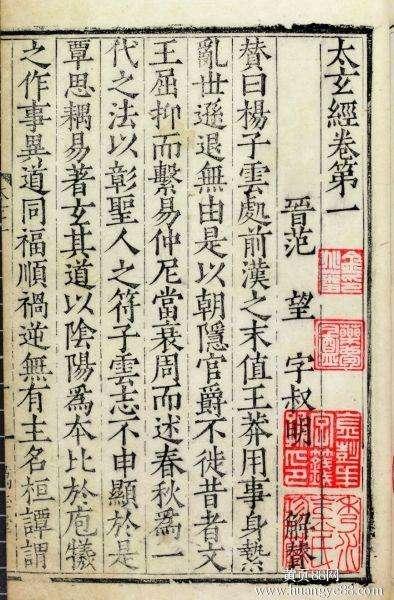 太玄經卷第一
晉范 望 字叔明 解贊
贊曰楊子雲處前漢之末值王莽用事身縶
亂世遜退無由是以朝隱官爵不徙昔者文
王屈抑而繫易仲尼當衰周而述春秋爲一
代之法以彰聖人之符子雲志不申顯於是
覃思耦易著玄其道以陰陽爲本比於庖犧
之作事異道同福順禍逆無有主名桓譚謂
黄页88网
www.huangye88.com